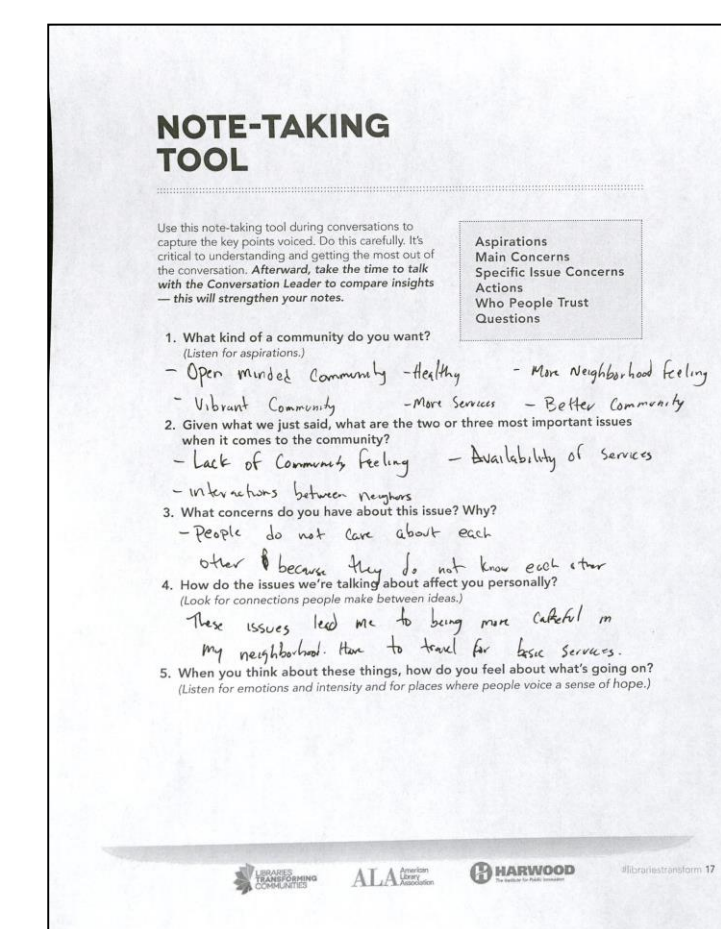 NOTE-TAKING
TOOL
Use this note-taking tool during conversations to
capture the key points voiced. Do this carefully. It's
critical to understanding and getting the most out of
the conversation. Afterward, take the time to talk
with the Conversation Leader to compare insights
— this will strengthen your notes.
Aspirations
Main Concerns
Specific Issue Concerns
Actions
Who People Trust
Questions
1. What kind of a community do you want?
(Listen for aspirations.)
- Open minded Community - Healthy - More Neighborhood Feeling
- Vibrant Community - More Services - Better Community
2. Given what we just said, what are the two or three most important issues
when it comes to the community?
- Lack of Community Feeling - Availability of Services
- interactions between neighbors
3. What concerns do you have about this issue? Why?
- People do not care about each
other because they do not know each other
4. How do the issues we're talking about affect you personally?
(Look for connections people make between ideas.)
These issues lead me to being more careful in
my neighborhood. Have to travel for basic services.
5. When you think about these things, how do you feel about what's going on?
(Listen for emotions and intensity and for places where people voice a sense of hope.)
LIBRARIES
TRANSFORMING
COMMUNITIES
ALA American
Library
Association
HARWOOD
The Institute for Public Innovation
#librariestransform 17